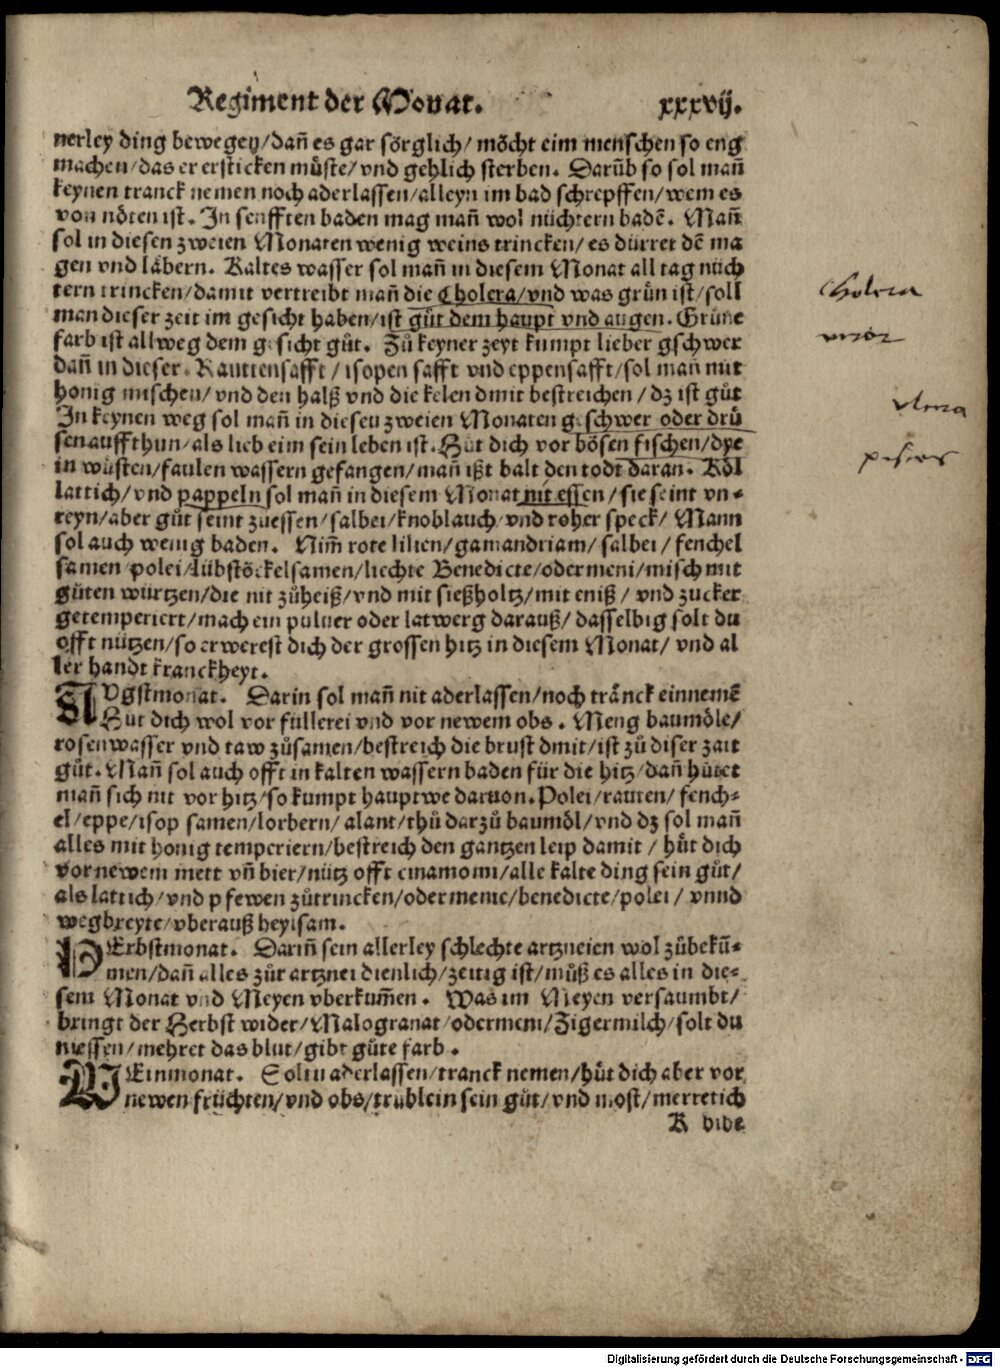 Regiment der Monat. xxxvij.
nerley ding bewegen/dañ es gar sörglich/ möcht eim menschen so eng
machen/das er ersticken müste/vnd gehlich sterben. Darũb so sol mañ
keynen tranck nemen noch aderlassen/alleyn im bad schrepffen/wem es
von nöten ist. In senfften baden mag mañ wol nüchtern badẽ. Mañ
sol in diesen zweien Monaten wenig weins trincken/ es dürret dẽ ma
gen vnd läbern. Kaltes wasser sol mañ in diesem Monat all tag nüch
tern trincken/damit vertreibt mañ die Cholera/vnd was grün ist/soll
man dieser zeit im gesicht haben/ist gůt dem haupt vnd augen. Grüne
farb ist allweg dem gesicht gůt. Zů keyner zeyt kumpt lieber gschwer
dañ in dieser. Rauttensafft/isopen safft vnd eppensafft/sol mañ mit
honig mischen/vnd den halß vnd die kelen dmit bestreichen/dz ist gůt
In keynen weg sol mañ in diesen zweien Monaten geschwer oder drü
sen auffthun/als lieb eim sein leben ist. Hůt dich vor bösen fischen/dye
in wüsten/faulen wassern gefangen/mañ ißt balt den todt daran. Köl
lattich/vnd pappeln sol mañ in diesem Monat nit essen/sie seint vn-
reyn/aber gůt seint zuessen/salbei/knoblauch/vnd roher speck/ Mann
sol auch wenig baden. Nim̃ rote lilien/gamandriam/salbei/fenchel
samen/polei/lübstöckelsamen/liechte Benedicte/odermeni/misch mit
gůten würtzen/die nit zůheiß/vnd mit sießholtz/mit eniß/vnd zucker
getemperiert/mach ein puluer oder latwerg darauß/dasselbig solt du
offt nützen/so erwerest dich der grossen hitz in diesem Monat/vnd al
ler handt kranckheyt.
AVgstmonat. Darin sol mañ nit aderlassen/noch tränck einnemẽ
Hůt dich wol vor füllerei vnd vor newem obs. Meng baumöle/
rosenwasser vnd taw zůsamen/bestreich die brust dmit/ist zů diser zait
gůt. Mañ sol auch offt in kalten wassern baden für die hitz/dañ hütet
mañ sich nit vor hitz/so kumpt hauptwe daruon. Polei/rauten/fench-
el/eppe/isop samen/lorbern/alant/thů darzů baumöl/vnd dz sol mañ
alles mit honig temperiern/bestreich den gantzen leip damit/hůt dich
vor newem mett vñ bier/nütz offt cinamomi/alle kalte ding sein gůt/
als lattich/vnd pfewen zůtrincken/odermenie/benedicte/polei/vnnd
wegbreyte/vberauß heylsam.
HErbstmonat. Dariñ sein allerley schlechte artzneien wol zůbekũ-
men/dañ alles zůr artznei dienlich/zeitig ist/můß es alles in die-
sem Monat vnd Meyen vberkum̃en. Was im Meyen versaumbt/
bringt der Herbst wider/Malogranat/odermeni/Zigermilch/solt du
niessen/mehret das blut/gibt gůte farb.
WEinmonat. Soltu aderlassen/tranck nemen/hůt dich aber vor
newen früchten/vnd obs/trüblein sein gůt/vnd most/merretich
K
Cholera
Digitalisierung gefördert durch die Deutsche Forschungsgemeinschaft - DFG